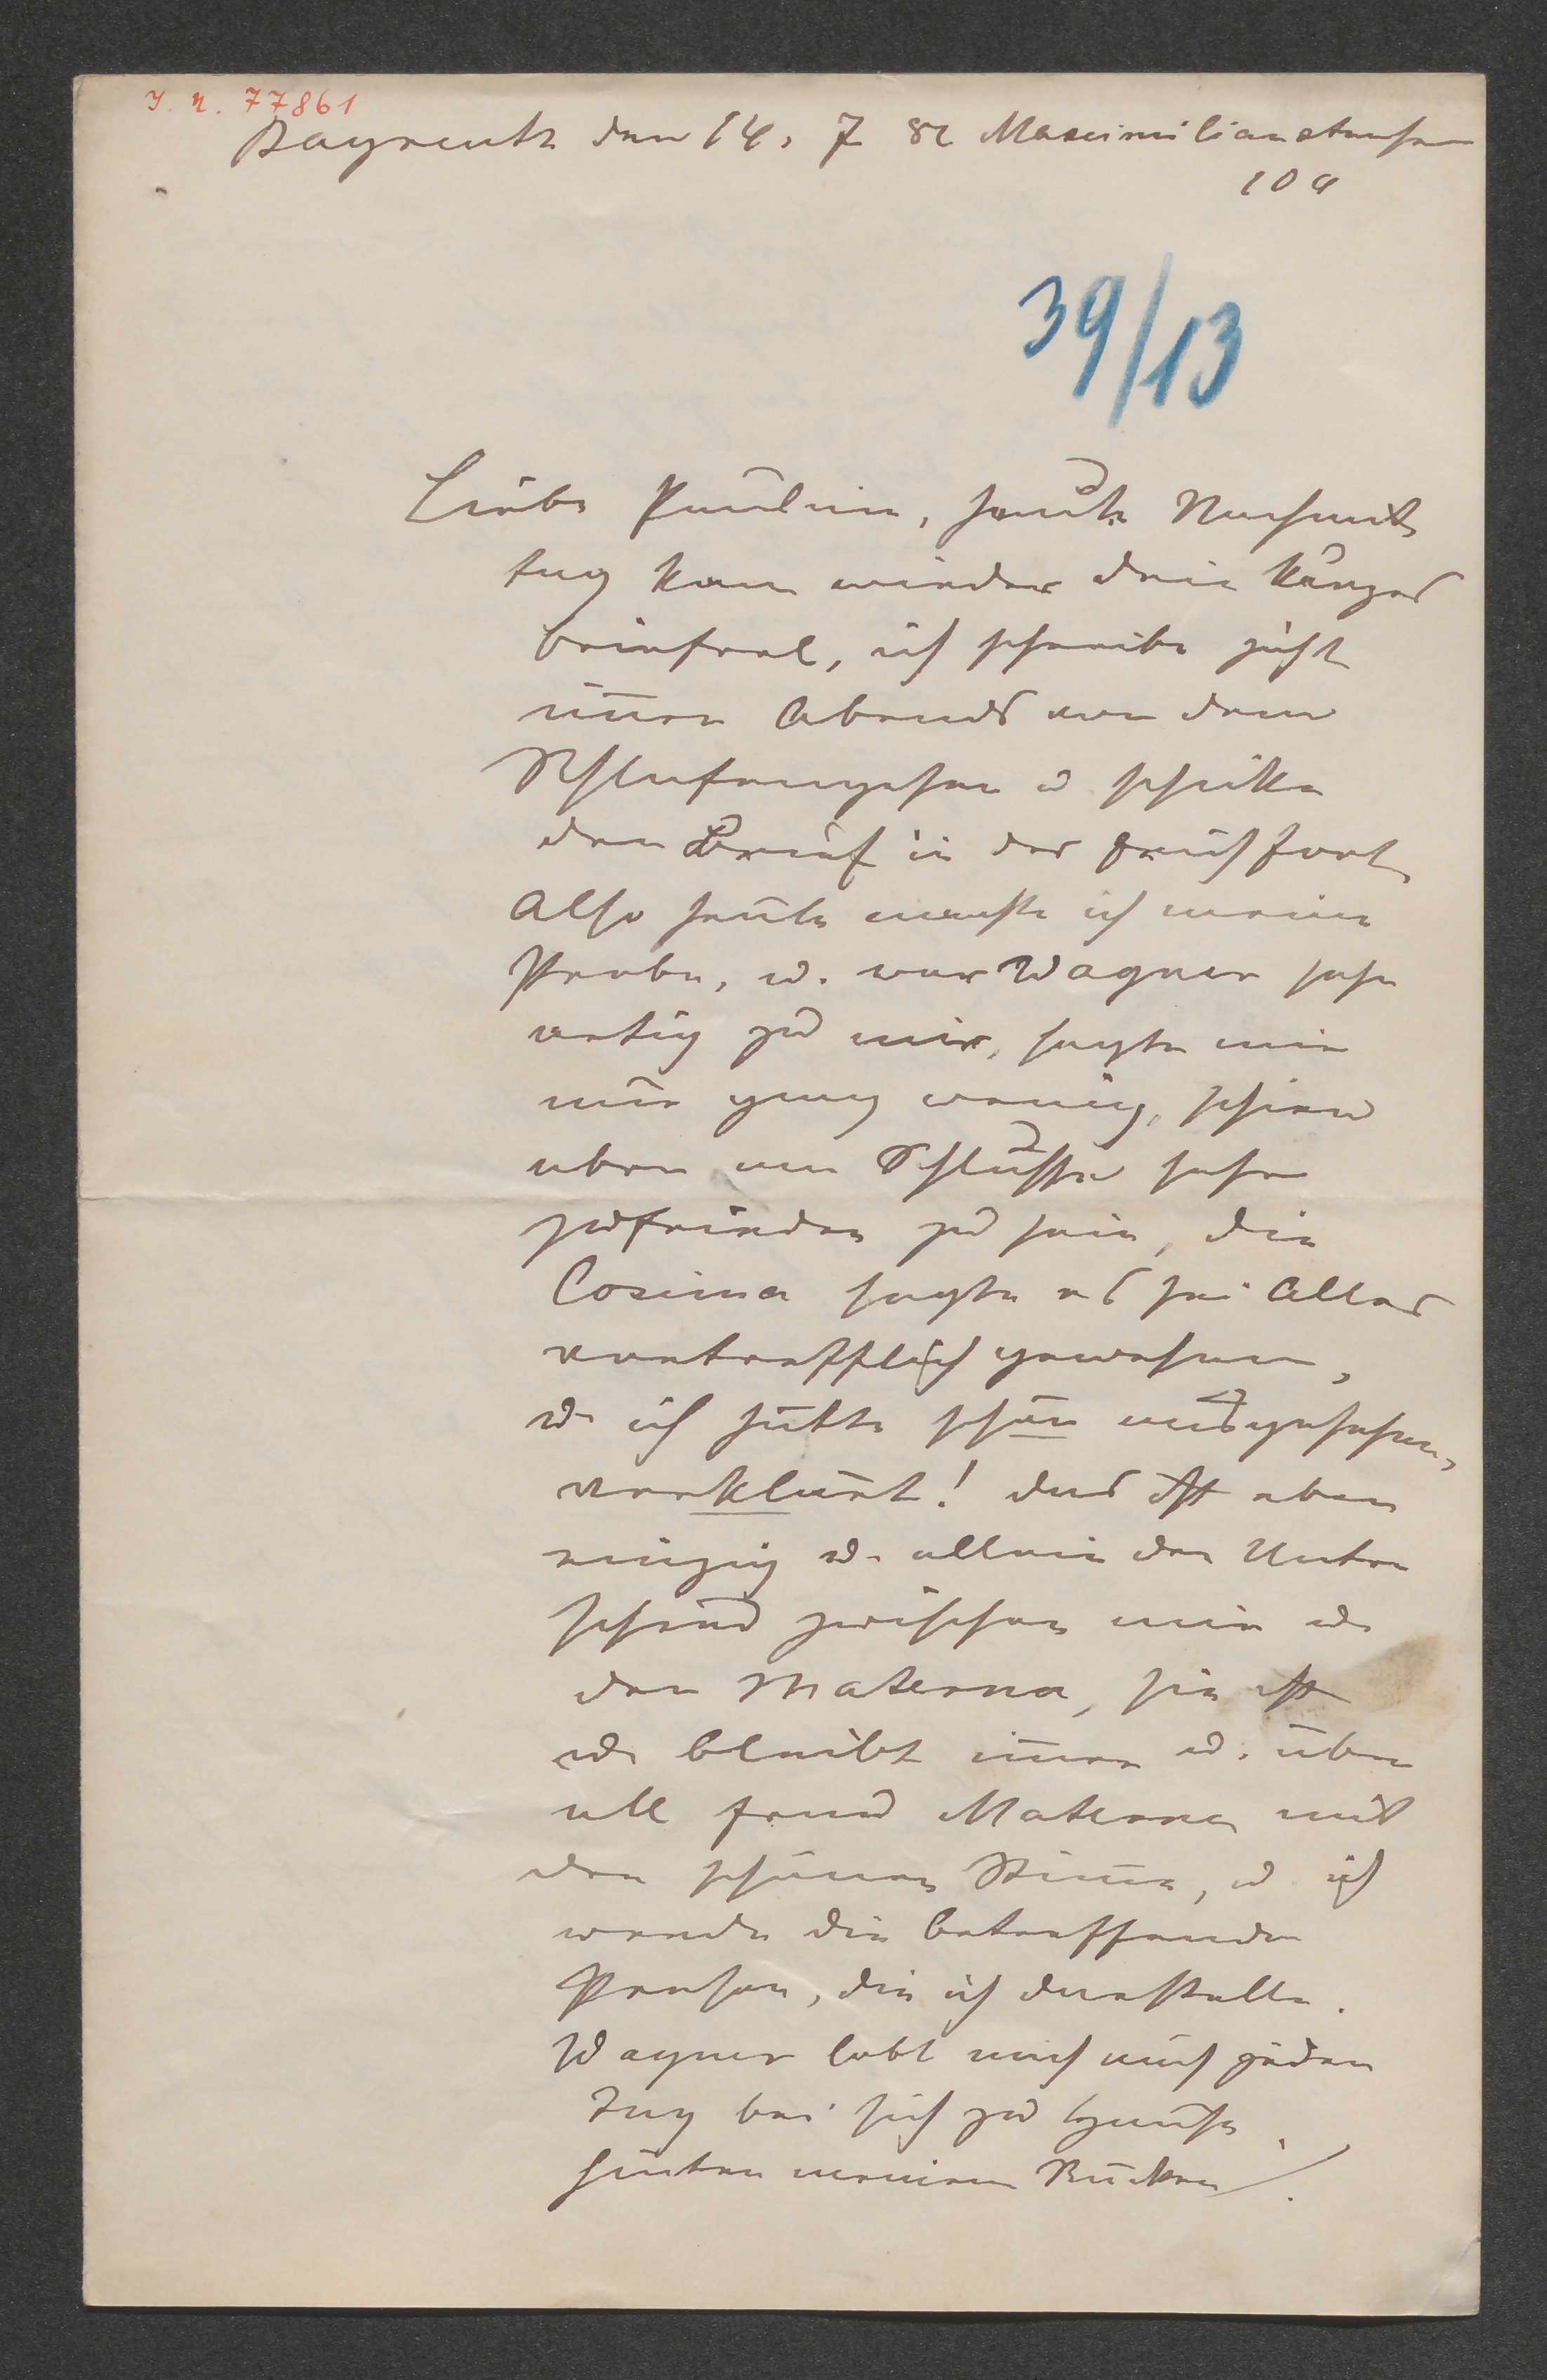 J. N. 77861
Bayreuth den 14. 7 82 Maximilianstraße
10 a
39/13
Liebe Paulin, heute Nachmit
tag kam wieder dein
ich schreibe jetzt
im̅er Abends vor dem
Schlafengehen u schicke
den Brief in der Früh fort
Also heute machte ich meine
Probe, u. war Wagner sehr
artig zu mir, sagte mir
nur ganz wenig, schien
aber am Schlusse sehr
zufrieden zu sein, die
Cosima sagte es sei Alles
vortrefflich gewesen,
u. ich hätte schön ausgesehen,
verklärt! das ist eben
einzig u. allein der Unter
schied zwischen mir u.
der Materna, sie ist
u. bleibt im̅er u. über
all Frau Materna mit
der schönen Stim̅e, u ich
werde die betreffende
Person, die ich darstelle.
Wagner lobt mich auch jeden
Tag bei sich zu Hause
hinter meinem Rücken.